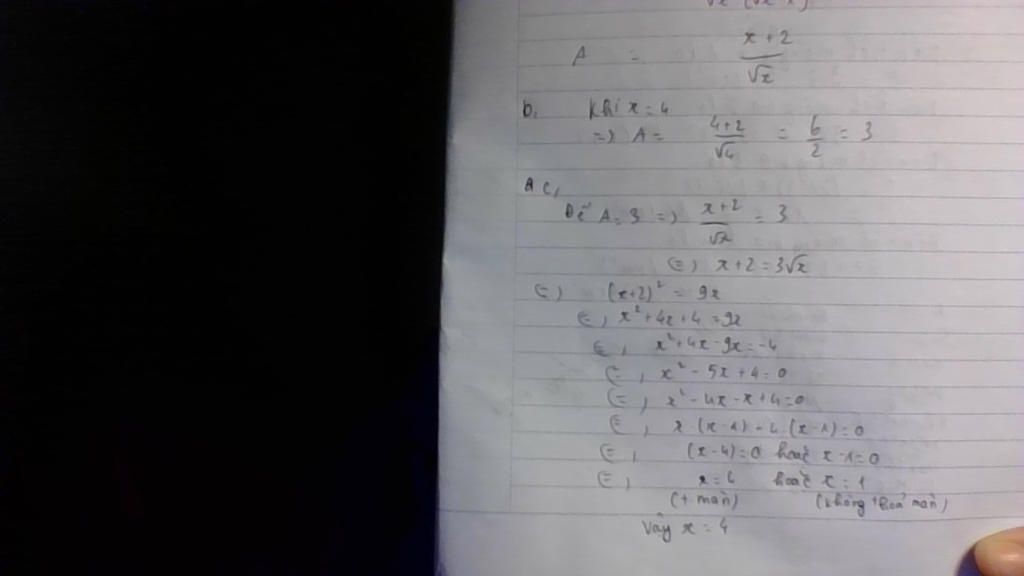 A = x+2 / √x
b, Khi x = 4
=) A = 4+2 / √4 = 6/2 = 3
c,
Để A = 3 =) x+2 / √x = 3
(=) x+2 = 3√x
(=) (x+2)² = 9x
(=, x² + 4x + 4 = 9x
(=, x² + 4x - 9x = -4
(=, x² - 5x + 4 = 0
(=, x² - 4x - x + 4 = 0
(=, x.(x-1) - 4.(x-1) = 0
(=, (x-4) = 0 hoặc x-1 = 0
(=, x = 4 hoặc x = 1
(t mãn) (không thoả mãn)
Vậy x = 4